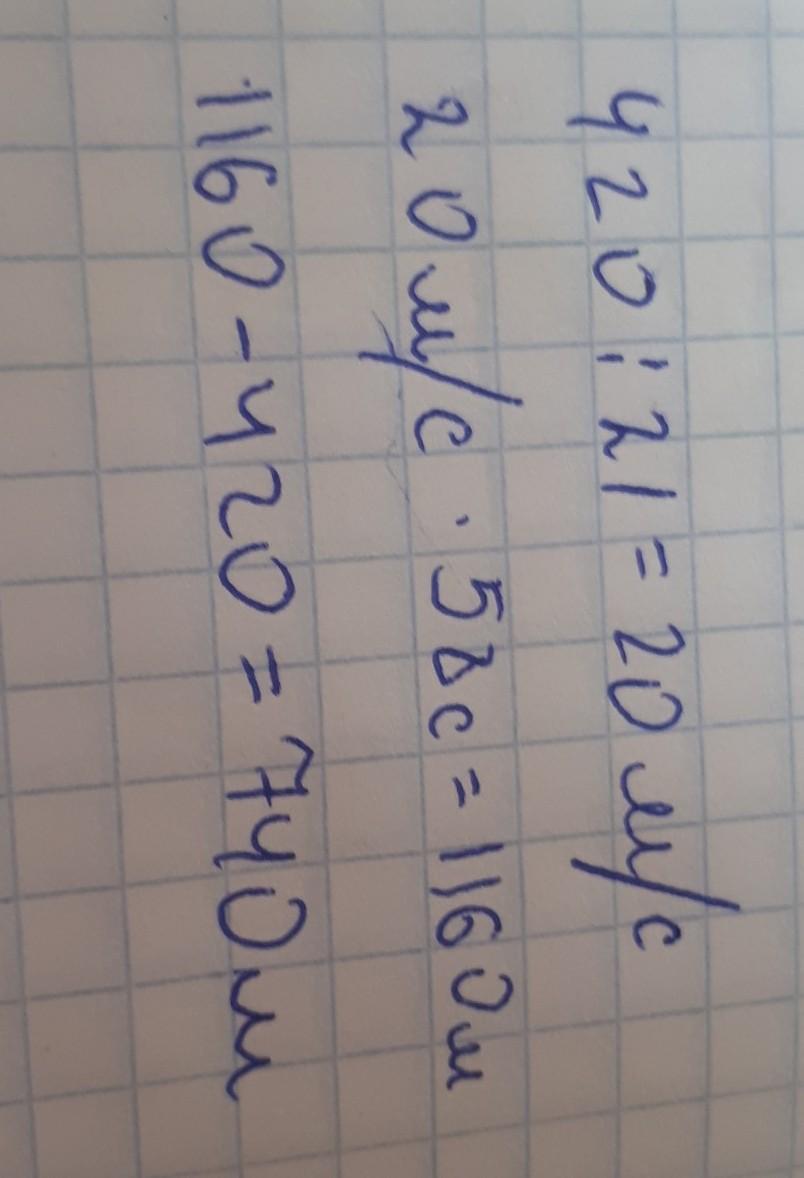 420:21=20м/с
20м/с·58с=1160м
1160-420=740м